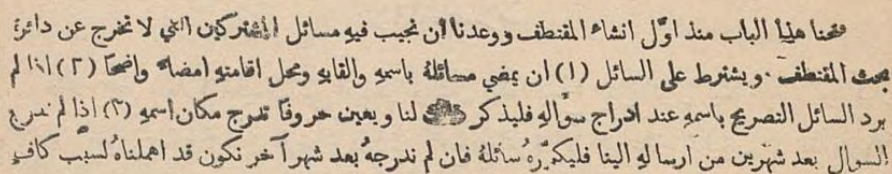 فتحنا هذا الباب منذ اوّل انشاء المقتطف ووعدنا ان نجيب فيهِ مسائل المشتركين التي لا تخرج عن دائرة
بحث المقتطف. ويشترط على السائل (١) ان يمضي مسائلهُ باسمهِ والقابهِ ومحل اقامتهِ امضاءً واضحًا (٢) اذا لم
يرد السائل التصريح باسمهِ عند ادراج سؤالهِ فليذكر لنا ويعين حروفًا تدرج مكان اسمهِ (٣) اذا لم ندرج
السوال بعد شهرين من ارسالهِ الينا فليكرّرهُ سائلهُ فان لم ندرجهُ بعد شهر آخر نكون قد اهملناهُ لسبب كافٍ